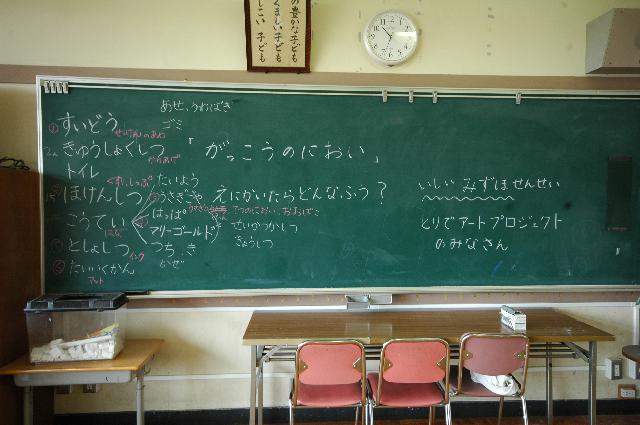 の豊かな子ども
くましい 子ども
しこい 子ども
あせ、うわばき
ゴミ
すいどう
せっけんのあわ
きゅうしょくしつ
からあげ
トイレ
ほけんしつ
こうてい
はな
としょしつ
インク
たいいくかん
マット
くさ、しっぽ
たいよう
うさぎごや
はっぱ
マリーゴールド
つち、き
かぜ
「がっこうのにおい」
えにかいたらどんなふう？
てつのにおい、おおばこ
せいかつかしつ
きょうしつ
いしい みずほ せんせい
とりでアートプロジェクト
のみなさん